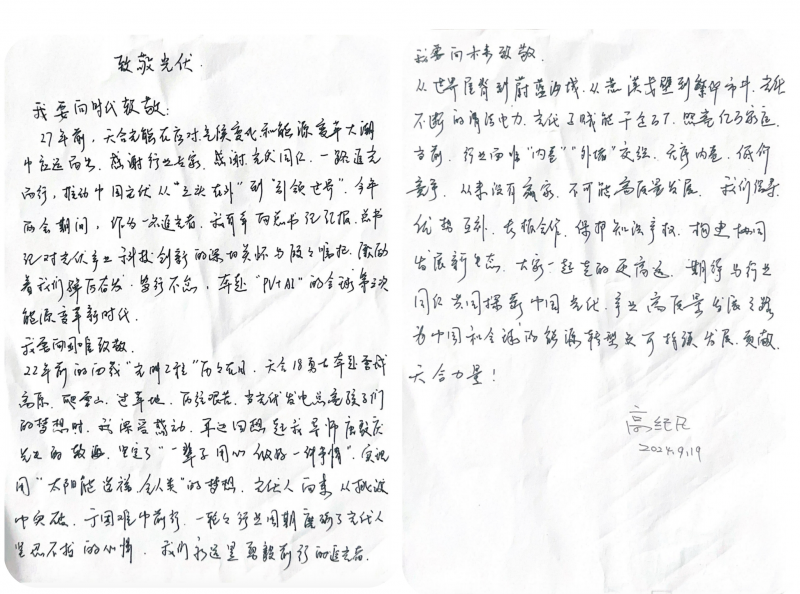 致敬光伏
我要向时代致敬:
27年前，天合光能在应对气候变化和能源变革大潮
中应运而出，感谢行业专家，感谢光伏同仁，一路追光
而行，推动中国光伏从"三头在外"到"引领世界"。今年
两会期间，作为一名追光者，我有幸向总书记汇报，总书
记对光伏产业科技创新的深切关怀与殷殷嘱托，激励
着我们踔厉奋发，笃行不怠，奔赴"PV+AI"的全球第三次
能源变革新时代。
我要向困难致敬。
22年前的西藏"光明工程"历历在目，天合18勇士奔赴雪域
高原，爬雪山，过草地，历经艰苦，当光伏发电点亮孩子们
的梦想时，我深受感动，耳边回想起我导师唐敖庆
先生的教诲，坚定了"一辈子用心做好一件事情"，实现
用"太阳能造福全人类"的梦想，光伏人向来从挑战
中突破，于困难中前行，一轮轮行业周期磨砺了光伏人
坚忍不拔的心情，我们永远是勇毅前行的追光者。
我要向未来致敬。
从世界屋脊到蔚蓝海域，从荒漠戈壁到繁华市井，光伏
不断的清洁电力，光伏了赋能千企万T，照亮亿万家庭，
当前，行业面临"内卷""外堵"交织，无序内卷，低价
竞争，从来没有赢家，不可能高质量发展，我们倡导
优势互补，专报合作，保护知识产权，构建协同
发展新生态，大家一起走的更高远，期待与行业
同仁共同探索中国光伏产业高质量发展之路
为中国和全球的能源转型和可持续发展，贡献
天合力量！
高纪凡
2024.9.19